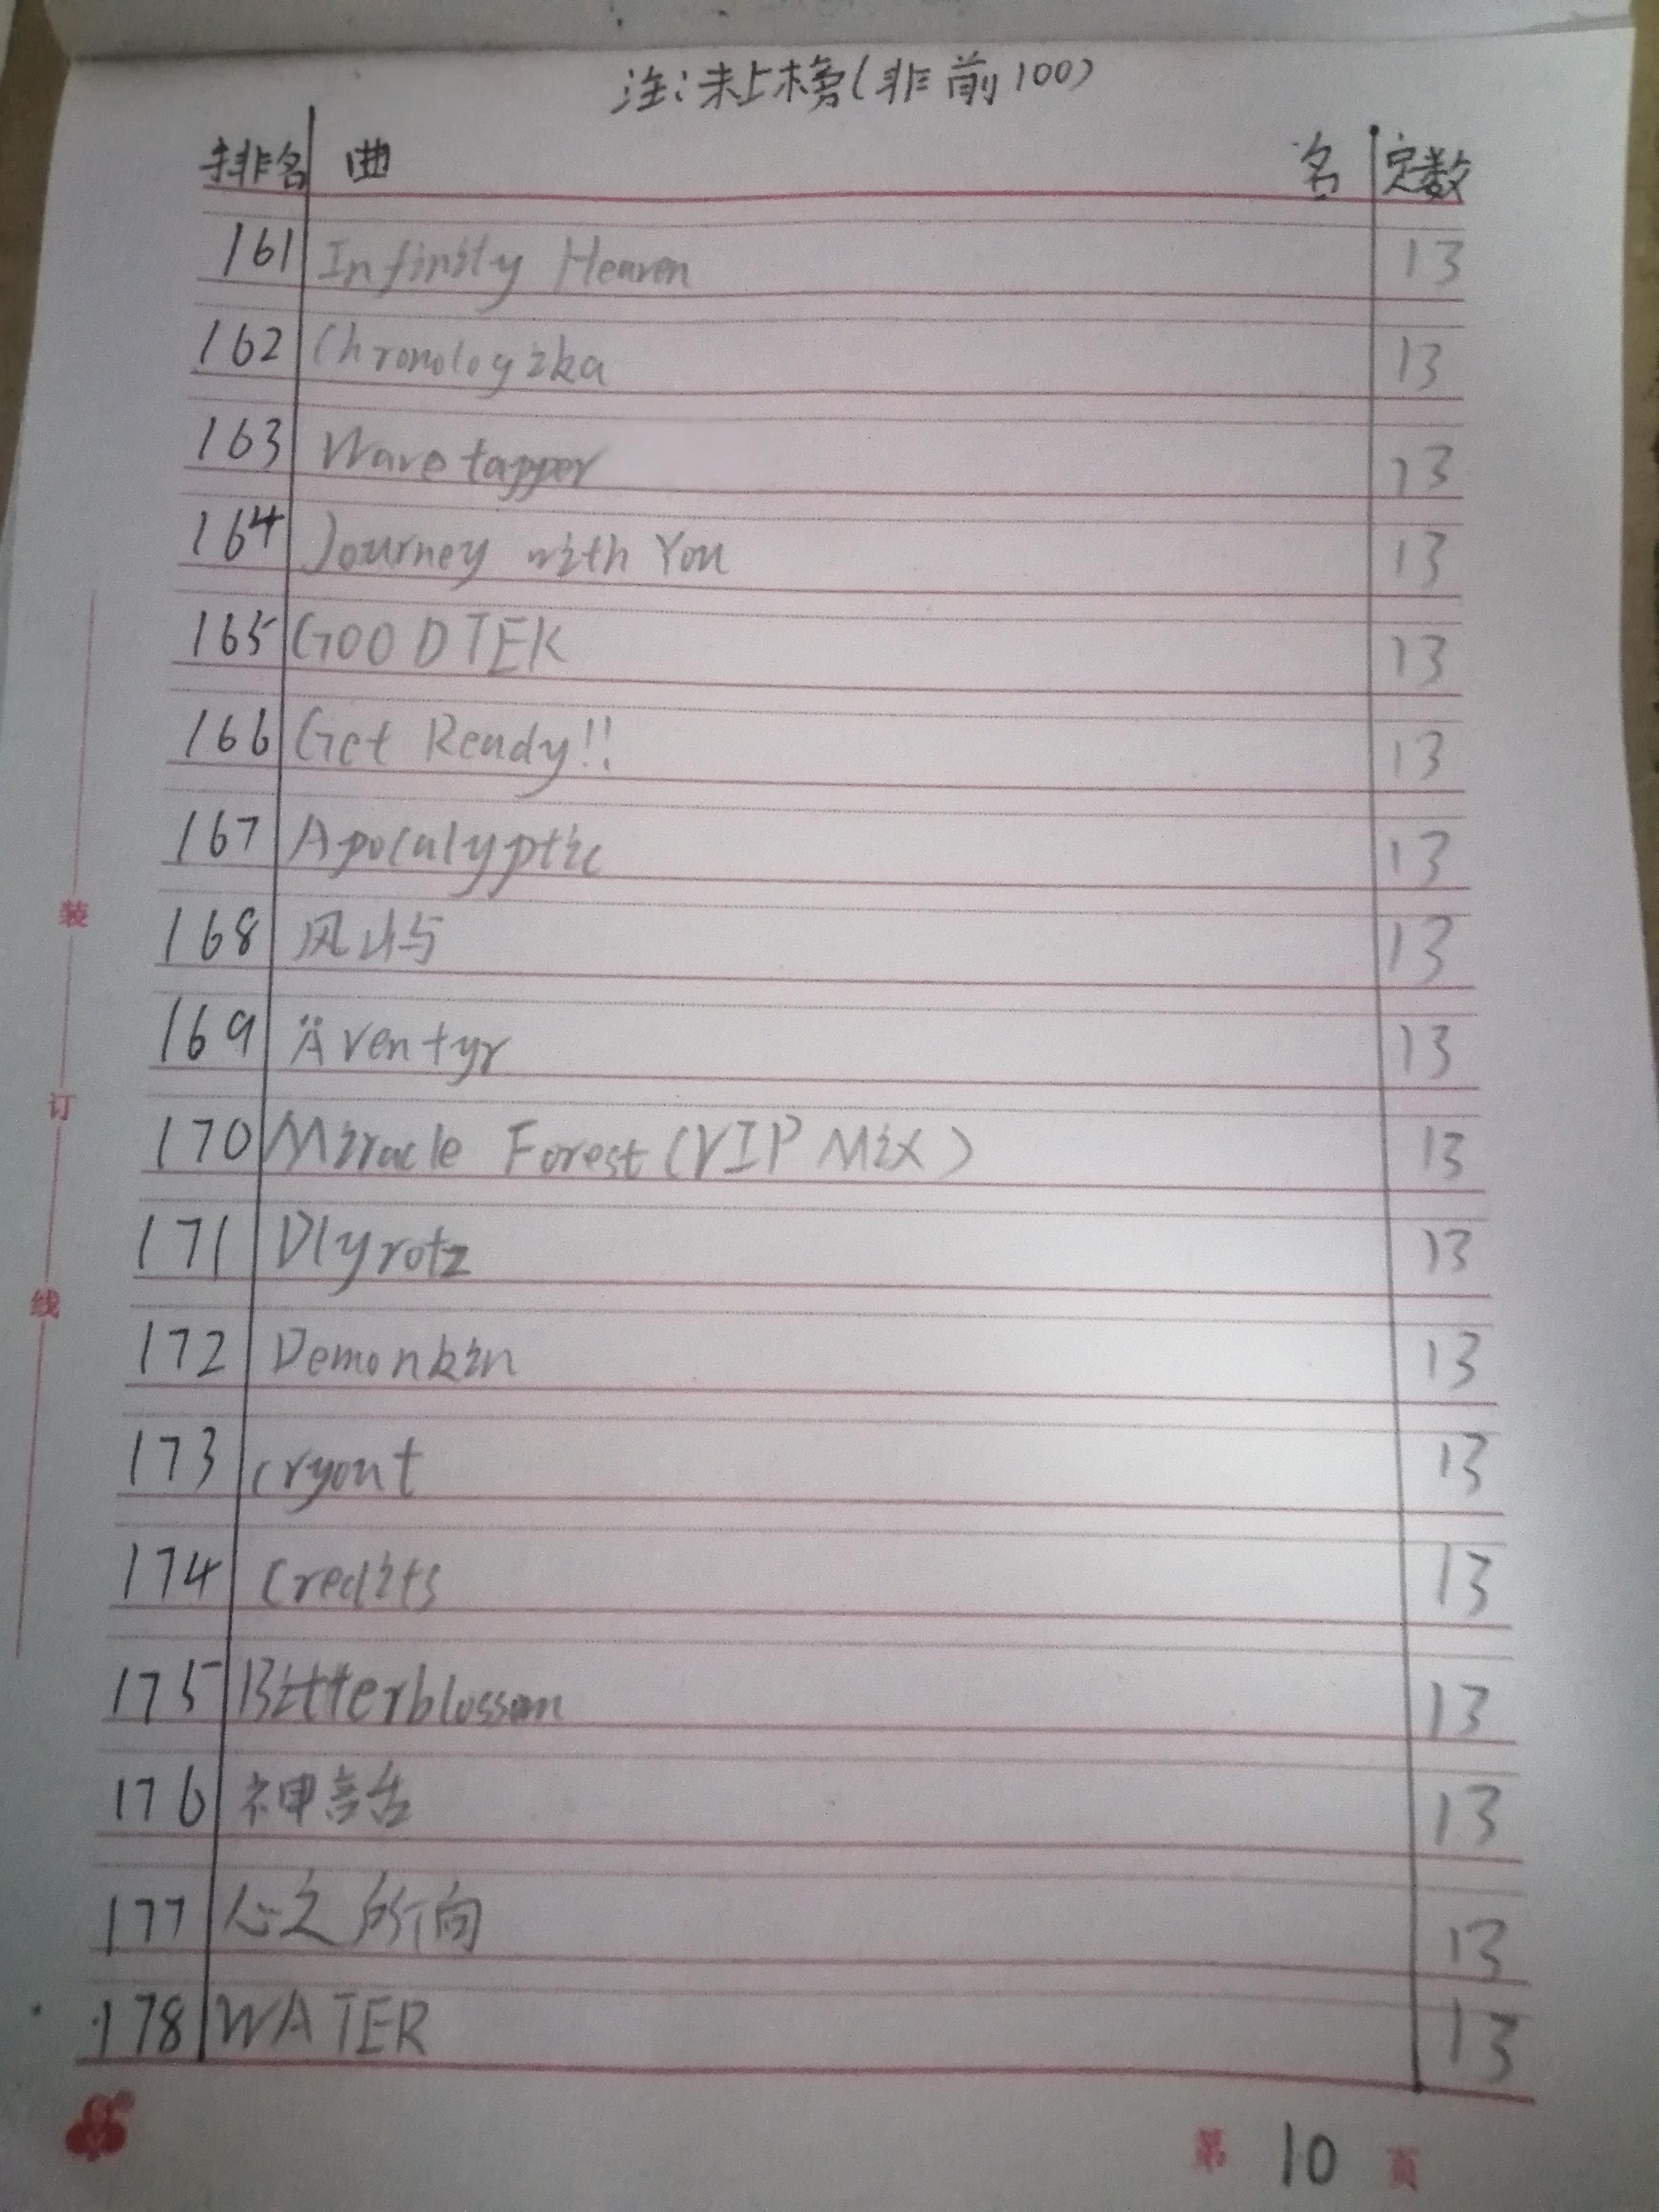 注:未上榜(非前100)
排名 曲 名 定数
161 Infinity Heaven 13
162 Chronologika 13
163 Wavetapper 13
164 Journey with You 13
165 GOODTEK 13
166 Get Ready!! 13
167 Apocalyptic 13
168 风屿 13
169 Äventyr 13
170 Miracle Forest(VIP Mix) 13
171 Dlyrotz 13
172 Demonkin 13
173 cryout 13
174 Credits 13
175 Bitterblossom 13
176 神話 13
177 心之所向 13
178 WATER 13
装
订
线
第 10 頁